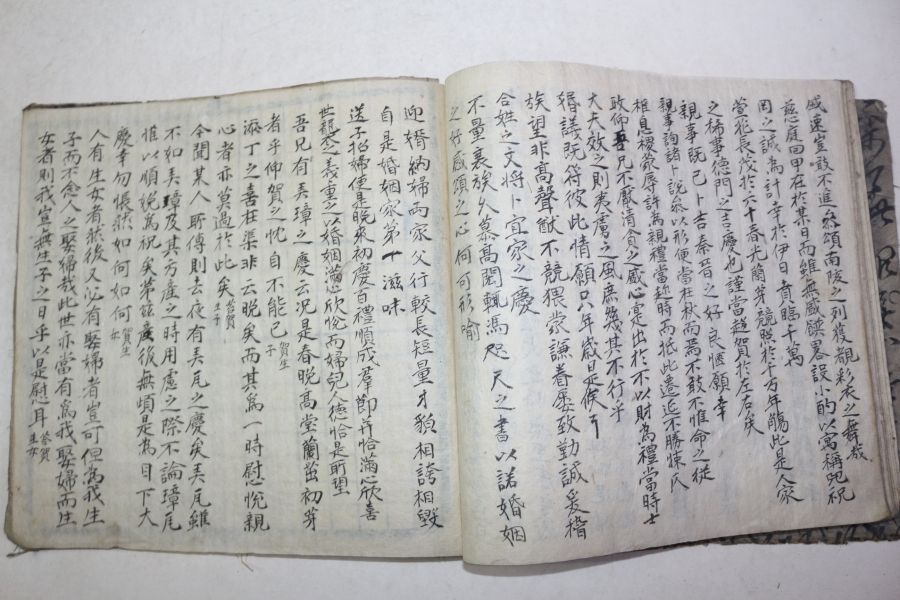 盛速豈敢不進參頌南陔之列獲觀彩衣之舞哉
慈庭回甲在於某日而雖無盛饌畧設小酌以寓稱兕祝
岡之誠為計幸於伊日賁臨千萬
萱花長茂於六十春光簡芽競照於千万年觴此是人家
之稀事德門之吉慶也謹當趍賀於左右矣
親事既已卜吉秦晉之好良愜願幸
親事詢諸卜說參以形便當在秋而焉不敢不惟命之從
椎息稷帶辱許為親禮當趍時而抵此遣近不勝悚仄
政仰吾兄不厭清貧之盛心寔出於不以財為禮當時士
大夫效之則夷虜之風庶幾其不行乎
婚議既符彼此情願只年歲日是俟耳
族望非高聲猷不競猥蒙謙眷屢致勤誠爰稽
合姓之文將卜宜家之慶
不量裏族久慕高閎輒馮咫尺之書以諾婚姻
之好感頌之心何可形喻
迎婚納婦兩家父行較長短量才貌相誇相毀
自是婚姻家第一滋味
送子招婦使是晚來初慶百禮順成羣節幷恰滿心欣喜
世觀念義重之以婚姻滿心欣悅而婦兒人德恰是所望
吾兄有弄璋之慶云況是春晚高堂蘭茁初芽
者乎仰賀之忱自不能已 賀生子
添丁之喜在渠非云晚矣而其為一時慰悅親
心者亦莫過於此矣 答賀生子
今聞某人所傳則去夜有弄瓦之慶矣弄瓦雖
不如弄璋及其方產之時用慮之際不論璋瓦
惟以順娩為祝矣第玆產後無頉是為目下大
慶幸勿悵然如何如何 賀生女
人有生女者然後又必有娶婦者豈可但為我生
子而不念人之娶婦哉此世亦當有為我娶婦而生
女者則我豈無生子之日乎以是慰耳 答賀生女